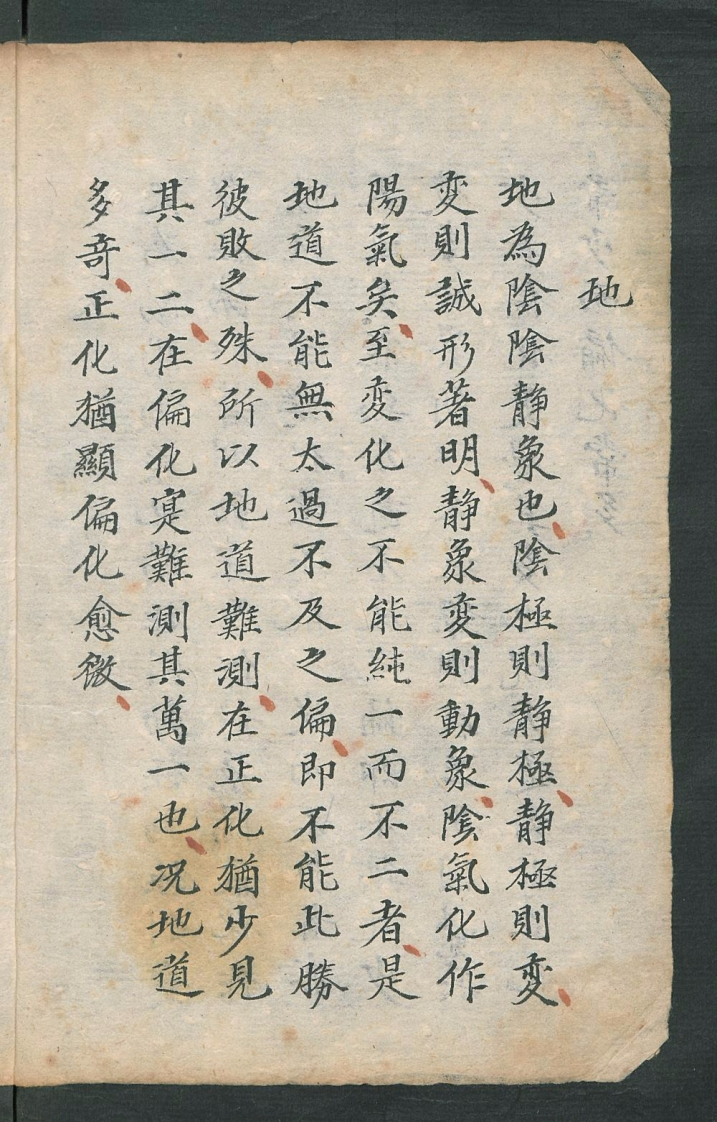 地
地為陰陰靜象也、陰極則靜極、靜極則変、
変則誠形著明、靜象変則動象、陰氣化作
陽氣矣、至変化之不能純一而不二者、是
地道不能無太過不及之偏、即不能此勝
彼敗之殊、所以地道難測、在正化猶少見
其一二、在偏化寔難測其萬一也、况地道
多竒、正化猶顯偏化愈微、